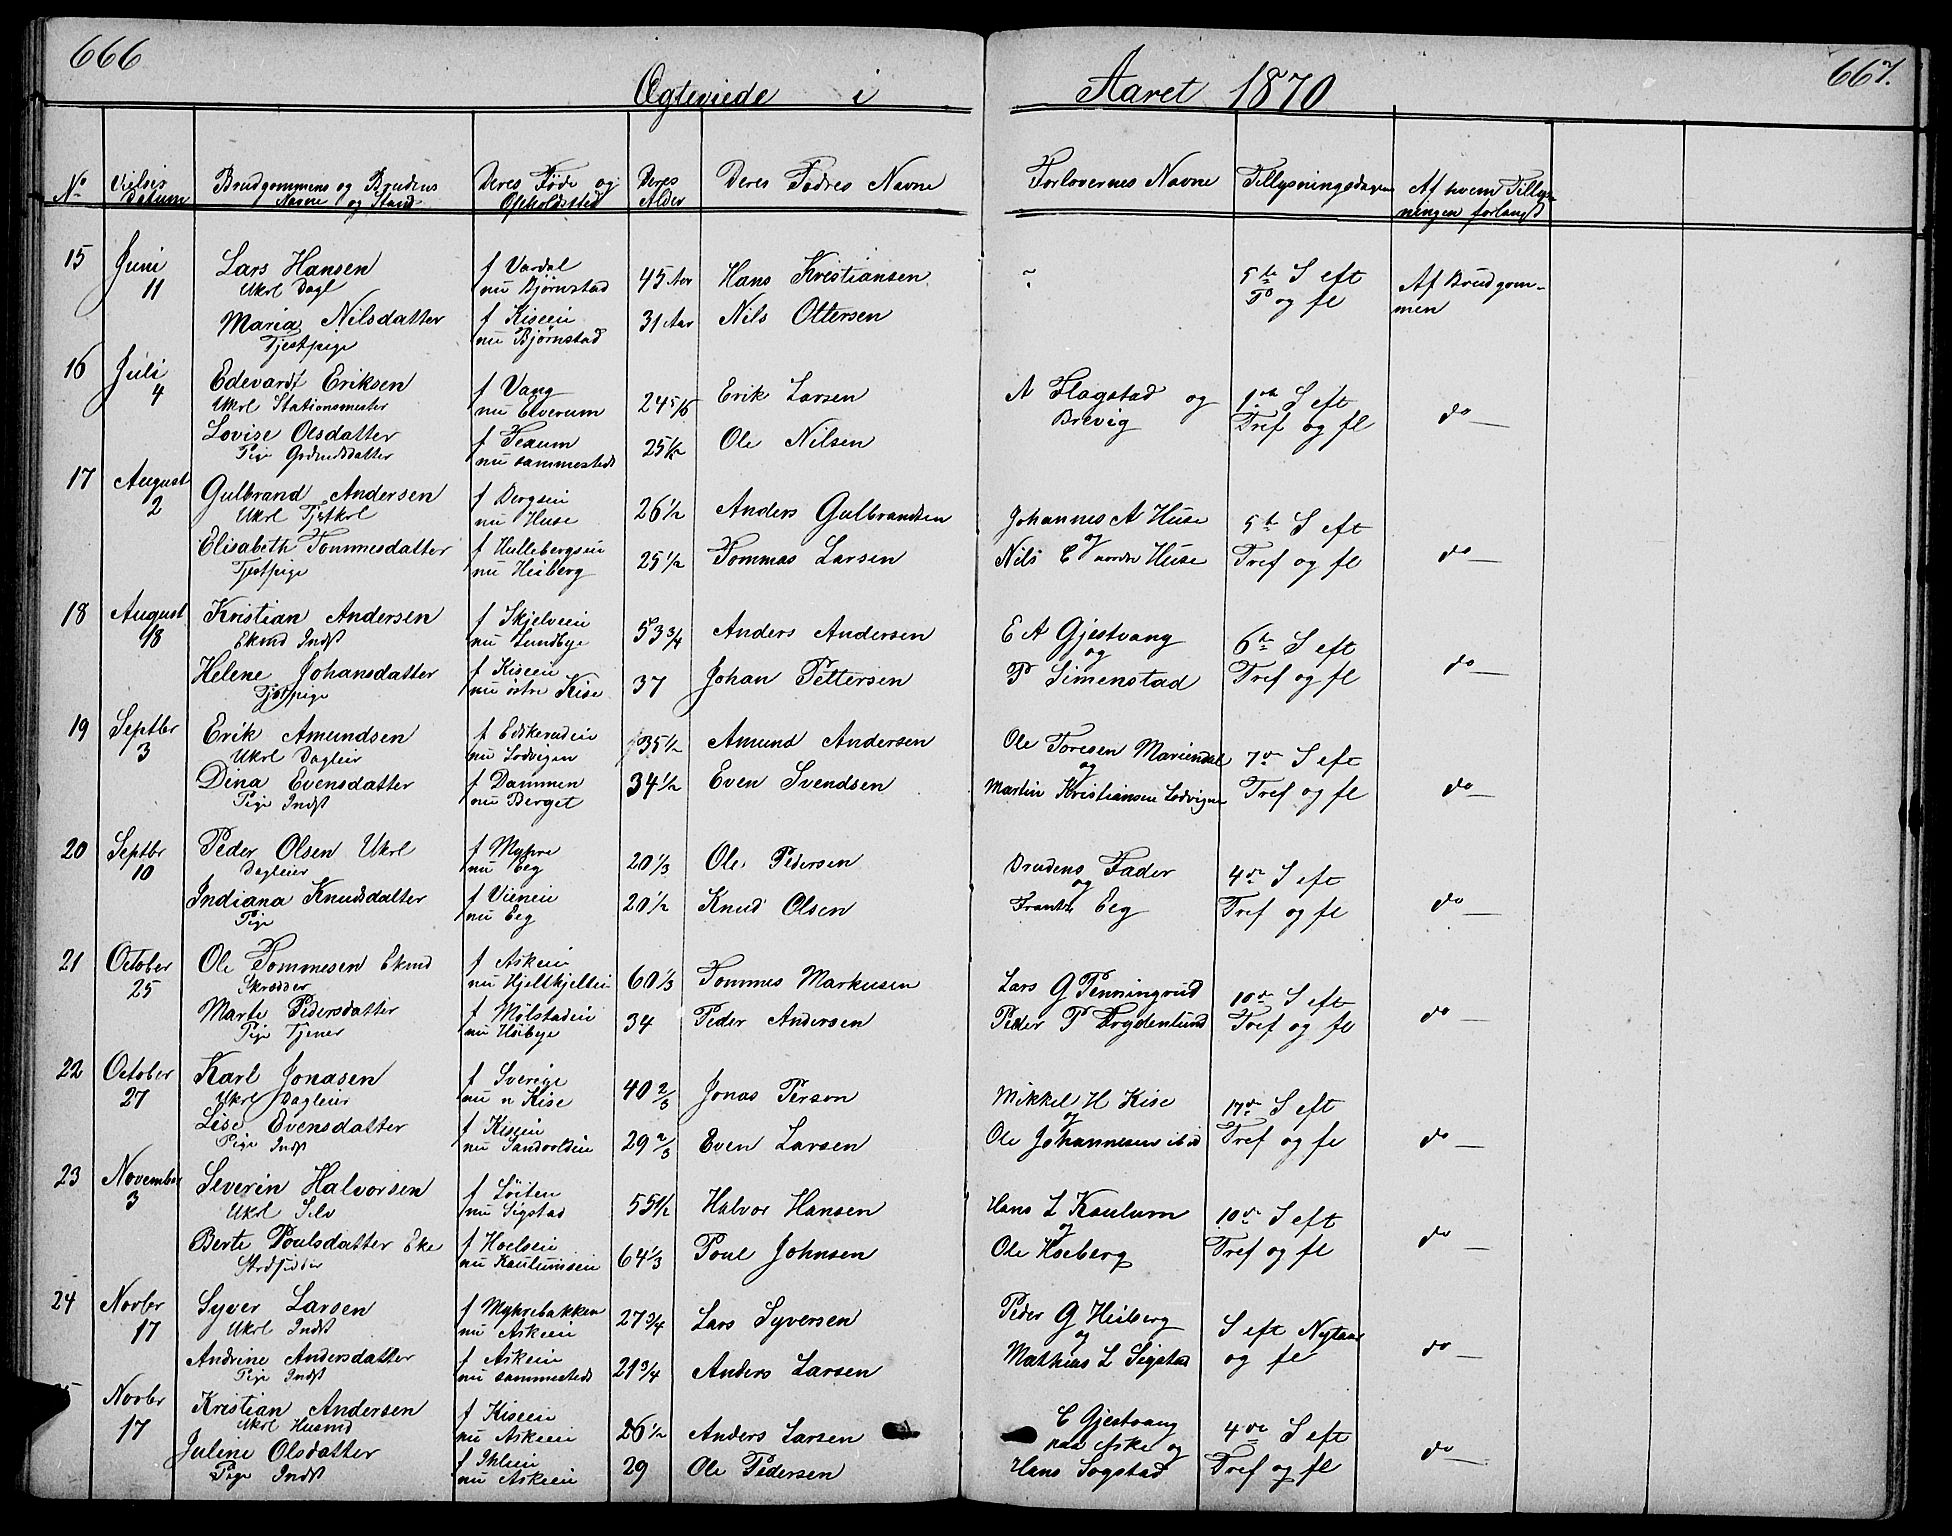 666
667.
Ægteviede i Aaret 1870
No
Vielses Datum
Brudgommens og Brudens Navne og Stand
Deres Føde og Opholdssted
Deres Alder
Deres Fædres Navne
Forlovernes Navne
Tillysningsdagen
Af hvem Tillysningen forlangt
15 Juni 11
Lars Hansen
Ukrl Dagl
f Vardal
nu Bjørnstad
45 Aar
Hans Kristiansen
5te S eft
T og fl
Af Brudgommen
Maria Nilsdatter
Tjestpige
f Kiseie
nu Bjørnstad
31 Aar
Nils Ottersen
16 Juli 4
Edevardt Eriksen
Ukrl Stationsmester
f Vang
nu Elverum
24 5/6
Erik Larsen
A Flagstad og
Brevig
1ste S eft
Tref og fl
do
Lovise Olsdatter
Pige
nu sammesteds
25 1/2
Ole Nilsen
17 August 2
Gulbrand Andersen
Ukrl Tjstkrl
f Bergseie
nu Huse
26 1/2
Anders Gulbrandsen
Johannes A Huse
og
5te S eft
Tref og fl
do
Elisabeth Tommesdatter
Tjestpige
f Hullebergseie
nu Heiberg
25 1/2
Tommas Larsen
Nils E nordre Huse
18 August 18
Kristian Andersen
Ekmd Indst
f Skjelveie
nu Lundbye
53 3/4
Anders Andersen
E A Gjestvang
og
6te S eft
Tref og fl
do
Helene Johansdatter
Tjstpige
f Kiseie
nu østre Kise
37
Johan Pettersen
P Simenstad
19 Septbr 3
Erik Amundsen
Ukrl Dagleier
f Edskerudeie
nu Lodvigen
35 1/2
Amund Andersen
Ole Toresen Mariendal
og
7de S eft
Tref og fl
do
Dina Evensdatter
Pige Indst
f Dammen
nu Berget
34 1/2
Even Svendsen
Martin Kristiansen Lodvigen
20 Septbr 10
Peder Olsen Ukrl
Dagleier
f Myhre
nu Eeg
20 1/3
Ole Pedersen
Brudens Fader
og
4de S eft
Tref og fl
do
Indiana Knudsdatter
Pige
f Vieneie
nu Eeg
20 1/2
Knud Olsen
Frants Eeg
21 October 25
Ole Tommesen Ekmd
Skrædder
f Askeie
nu Hjeltkjeltei
60 1/3
Tommes Markusen
Lars G Penningrud
10de S eft
Tref og fl
do
Marte Pedersdatter
Pige Tjener
f Mølstadeie
nu Høibye
34
Peder Andersen
Peder P Frydenlund
22 October 27
Karl Jonasen
Ukrl Dagleier
f Sverige
nu n Kise
40 2/3
Jonas Person
Mikkel H Kise
og
17de S eft
Tref og fl
do
Lise Evensdatter
Pige Indst
f Kiseie
nu Sandvoldeie
29 2/3
Even Larsen
Ole Johannesen ibid
23 November 3
Severin Halvorsen
Ukrl Selv
f Løiten
nu Sigstad
55 1/2
Halvor Hansen
Hans L Kaulum
og
10de S eft
Tref og fl
do
Berte Poulsdatter Eke
f Hoelseie
nu Kaulumseie
64 1/3
Poul Johnsen
Ole Hoeberg
24 Novbr 17
Syver Larsen
Ukrl Indst
f Myhrebakken
nu Askeie
27 3/4
Lars Syversen
Peder G Heiberg
og
S eft Nytaar
og fl
do
Andrine Andersdatter
Pige Indst
f Askeie
nu sammesteds
21 3/4
Anders Larsen
Mathias L Sigstad
Novbr 17
Kristian Andersen
Ukrl Husmd
f Kiseie
nu Askeie
26 1/2
Anders Larsen
C Gjestvang
paa Aske og
4de S eft
Tref og fl
do
Juline Olsdatter
Pige Indst
f Ihleie
nu Askeie
29
Ole Pedersen
Hans Sogstad